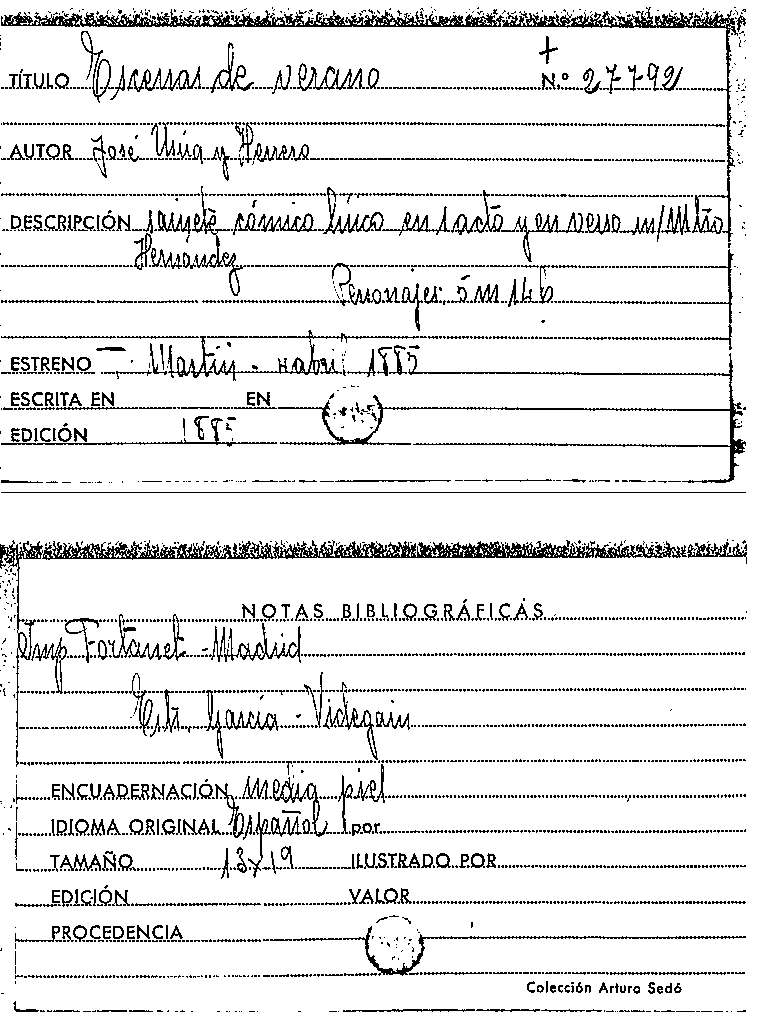 +
TÍTULO Escenas de verano N.º 27792
AUTOR José Usúa y Herrero
DESCRIPCIÓN sainete cómico lírico en 1 acto y en verso m/Mtro
Hernández
Personajes: 5 m 14 h
ESTRENO T. Martín - abril 1885
ESCRITA EN EN
EDICIÓN 1885
NOTAS BIBLIOGRÁFICAS
Imp Fortanet - Madrid
Estr. García - Videgain
ENCUADERNACIÓN media piel
IDIOMA ORIGINAL Español por
TAMAÑO 13x19 ILUSTRADO POR
EDICIÓN VALOR
PROCEDENCIA
Colección Arturo Sedó